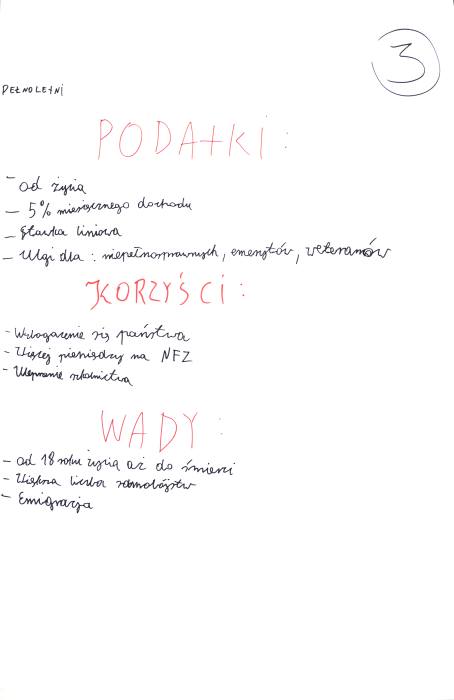 3
PEŁNOLETNI
PODATKI:
- od życia
- 5% miesięcznego dochodu
- Stawka liniowa
- Ulgi dla: niepełnosprawnych, emerytów, weteranów
KORZYŚCI:
- Wzbogacenie się państwa
- Więcej pieniędzy na NFZ
- Wspieranie szkolnictwa
WADY:
- od 18 roku życia aż do śmierci
- Większa liczba samobójstw
- Emigracja